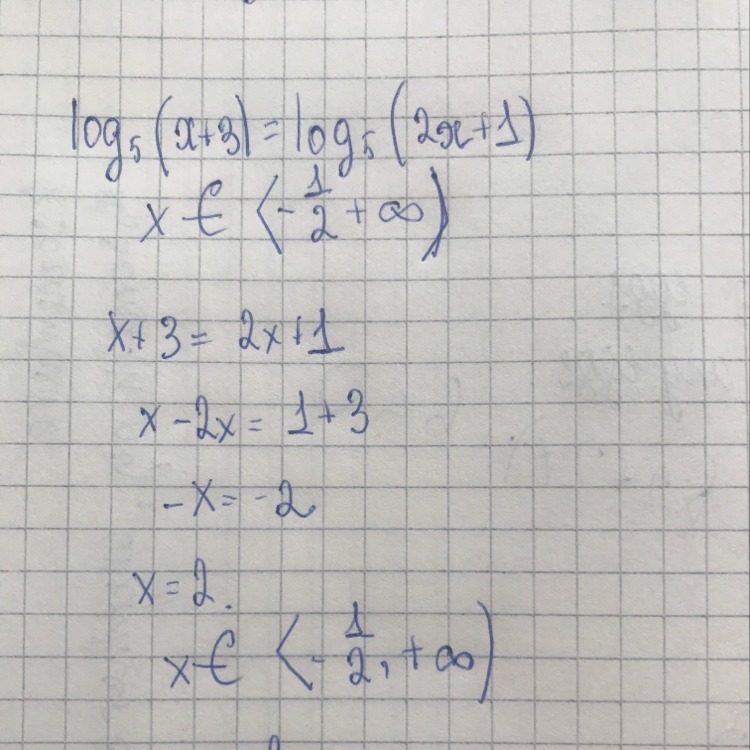 log₅(x+3) = log₅(2x+1)
x € ⟨-1/2 + ∞)
x+3 = 2x+1
x - 2x = 1+3
-x = -2
x = 2.
x € ⟨-1/2, +∞)